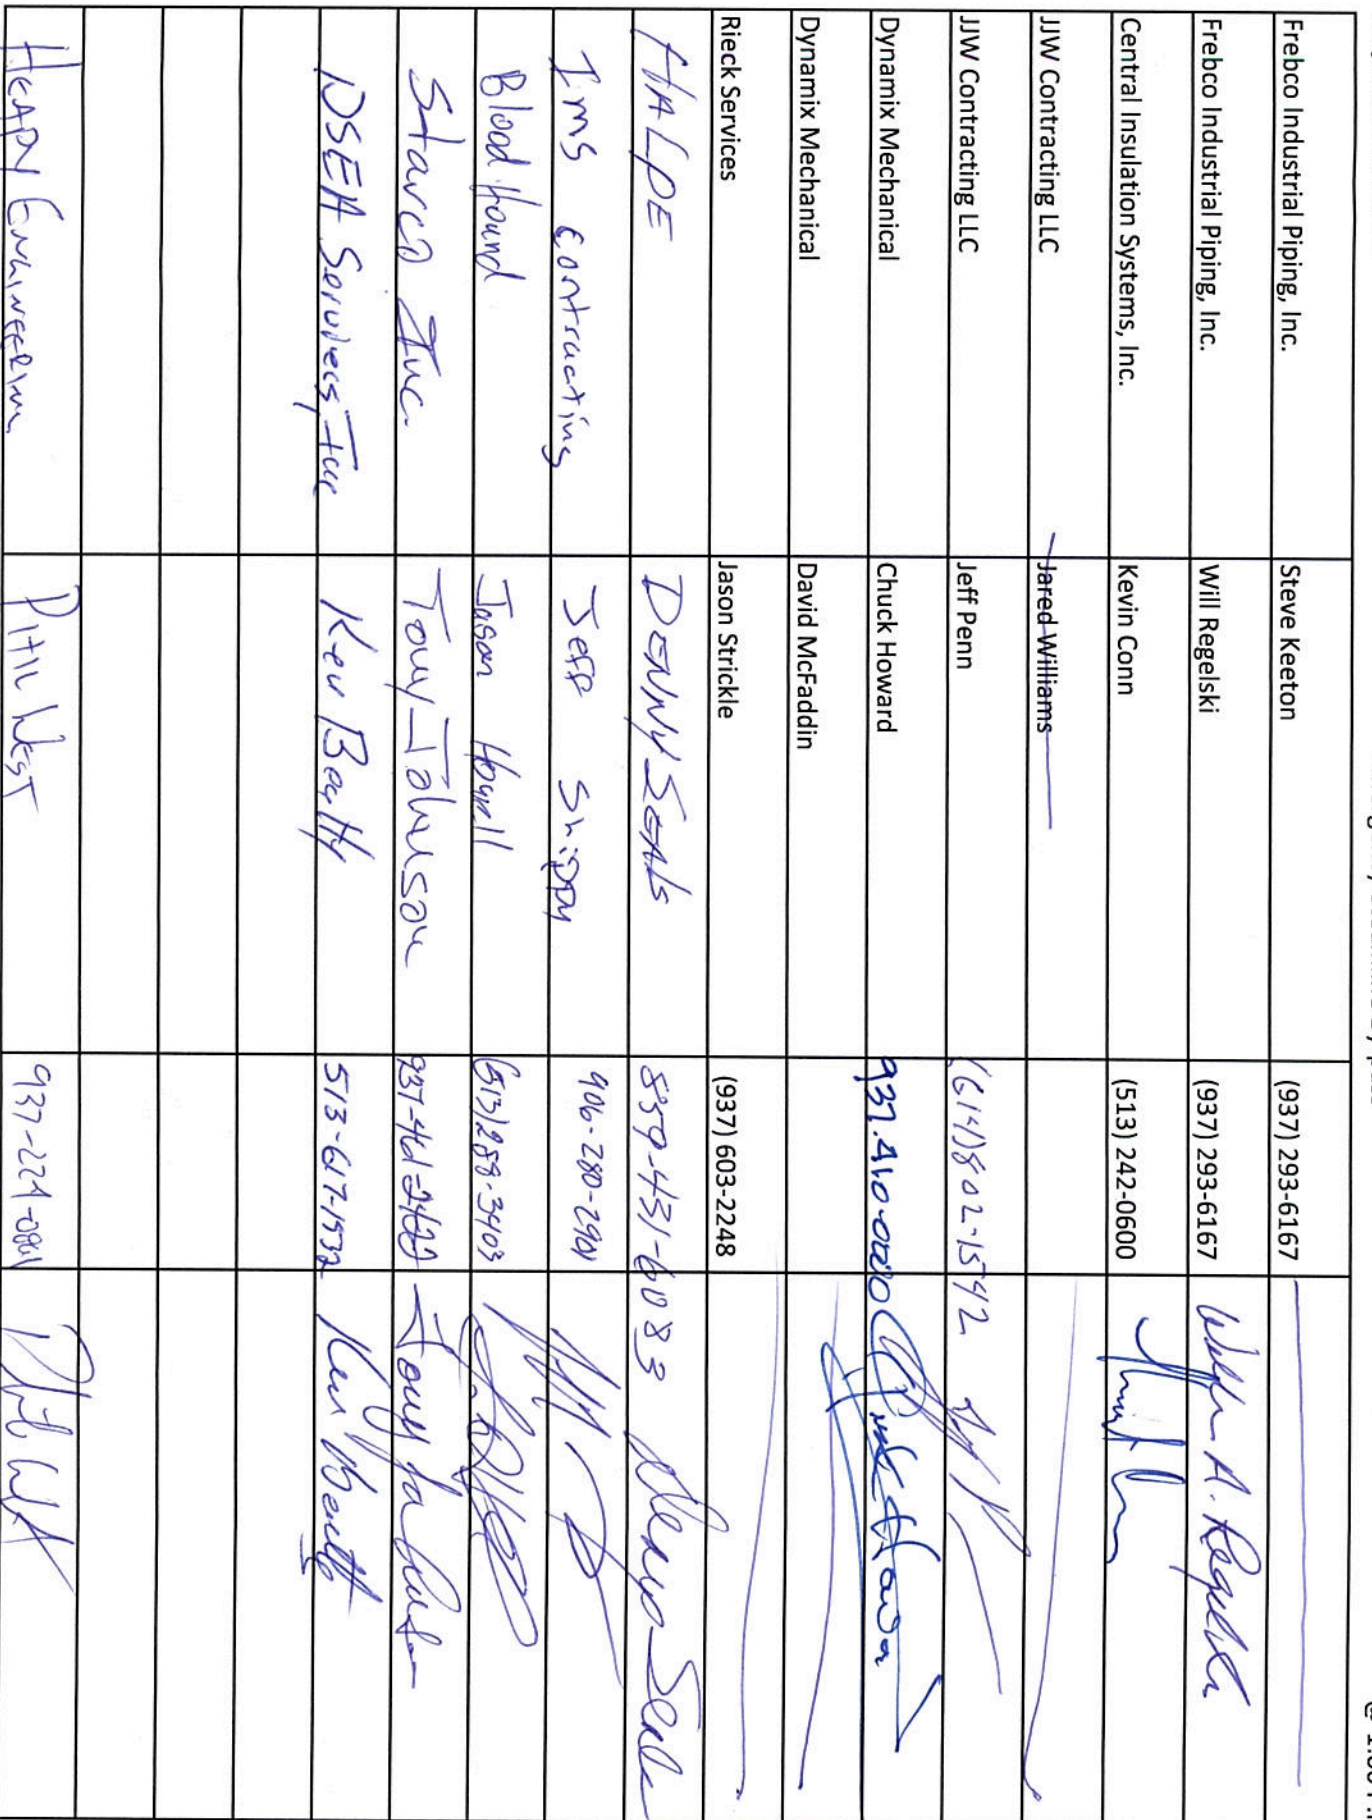 @ 1:00 P
Frebco Industrial Piping, Inc. Steve Keeton (937) 293-6167
Frebco Industrial Piping, Inc. Will Regelski (937) 293-6167
Central Insulation Systems, Inc. Kevin Conn (513) 242-0600
JJW Contracting LLC Jared Williams
JJW Contracting LLC Jeff Penn (614) 802-1542
Dynamix Mechanical Chuck Howard 937.410.0020
Dynamix Mechanical David McFaddin
Rieck Services Jason Strickle (937) 603-2248
HALPE DENNY SEALS 859-431-6083 Denny Seals
Ims contracting Jeff 906-280-2901
Blood Hound Jason Howell (513)288-3403
Starco Inc. Tony Johnson Tony Johnson
DSEA Services Inc Ken Beatty 513-617-1532 Ken Beatty
HEAPY ENGINEERING PHIL WEST Phil West